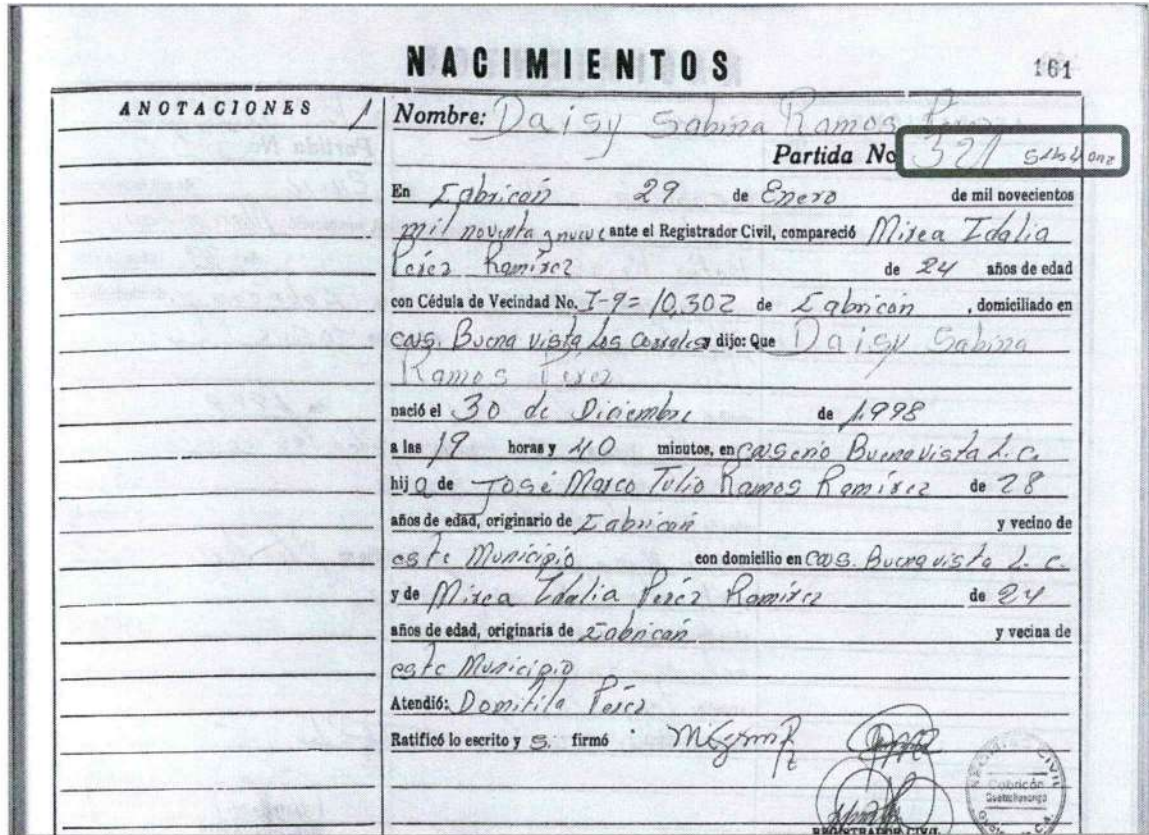 NACIMIENTOS
161
ANOTACIONES
1
Nombre: Daisy Sabina Ramos Perez
Partida No 321
En Cabricán 29 de Enero de mil novecientos
mil noventa y nueve ante el Registrador Civil, compareció Mirea Idalia
Peréz Ramírez de 24 años de edad
con Cédula de Vecindad No. I-9=10,302 de Cabricán , domiciliado en
cas. Buena vista Los Corrales y dijo: Que Daisy Sabina
Ramos Perez
nació el 30 de Diciembre de 1,998
a las 19 horas y 40 minutos, en caserio Buena vista L.C.
hij a de José Marco Tulio Ramos Ramírez de 28
años de edad, originario de Cabricán y vecino de
este Municipio con domicilio en cas. Buena vista L.C.
y de Mirea Idalia Peréz Ramírez de 24
años de edad, originaria de Cabricán y vecina de
este Municipio
Atendió: Domitila Peréz
Ratificó lo escrito y S. firmó
REGISTRO CIVIL
Cabricán
Quetzaltenango
REGISTRADOR CIVIL